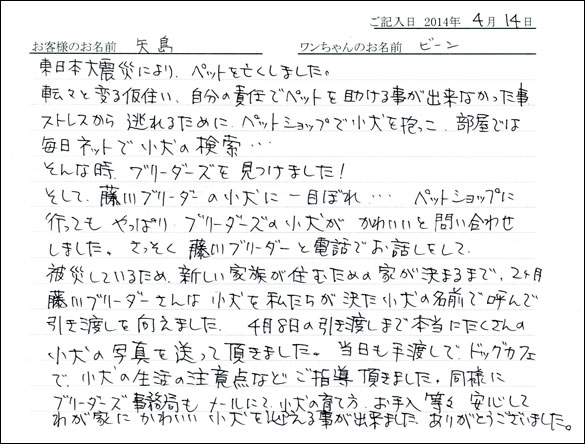 ご記入日 2014年 4月 14日
お客様のお名前 矢島 ワンちゃんのお名前 ビーン
東日本大震災により、ペットを亡くしました。
転々と変る仮住い、自分の責任でペットを助ける事が出来なかった事
ストレスから 逃れるために、ペットショップで小犬を抱っこ、部屋では
毎日ネットで小犬の検索…
そんな時、ブリーダーズを見つけました!
そして、藤川ブリーダーの小犬に一目ぼれ… ペットショップに
行っても やっぱり ブリーダーズの小犬が かわいいと問い合わせ
しました。さっそく 藤川ブリーダーと電話でお話しをして、
被災しているため、新しい家族が住むための家が決まるまで、2ヶ月
藤川ブリーダーさんは 小犬を私たちが決た小犬の名前で呼んで
引き渡しを向えました。 4月8日の引き渡しまで本当にたくさんの
小犬の写真を送って頂きました。当日も手渡しで、ドッグカフェ
で、小犬の生活の注意点など ご指導頂きました。同様に
ブリーダーズ事務局も メールにて、小犬の育て方、お手入等々 安心して
わが家に かわいい 小犬を迎える事が出来ました。ありがとうございました。